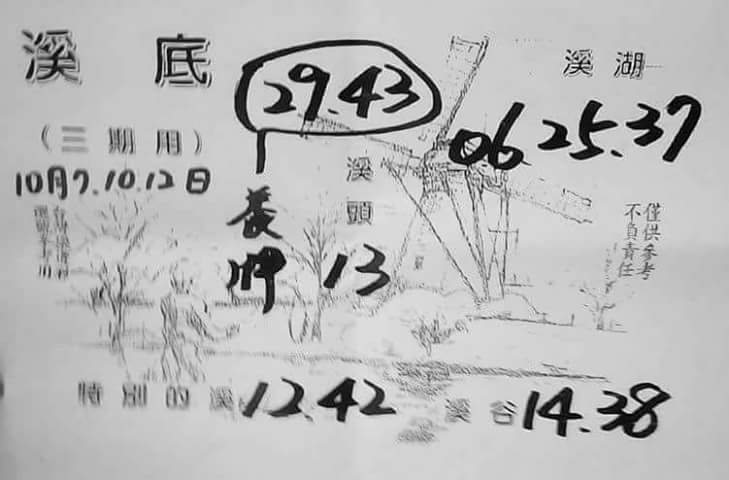 溪底
29.43
溪湖
06 25.37
(三期用)
10月7.10.12日
溪頭
13
養牌
僅供參考
不負責任
特別的溪 12.42
溪谷 14.38